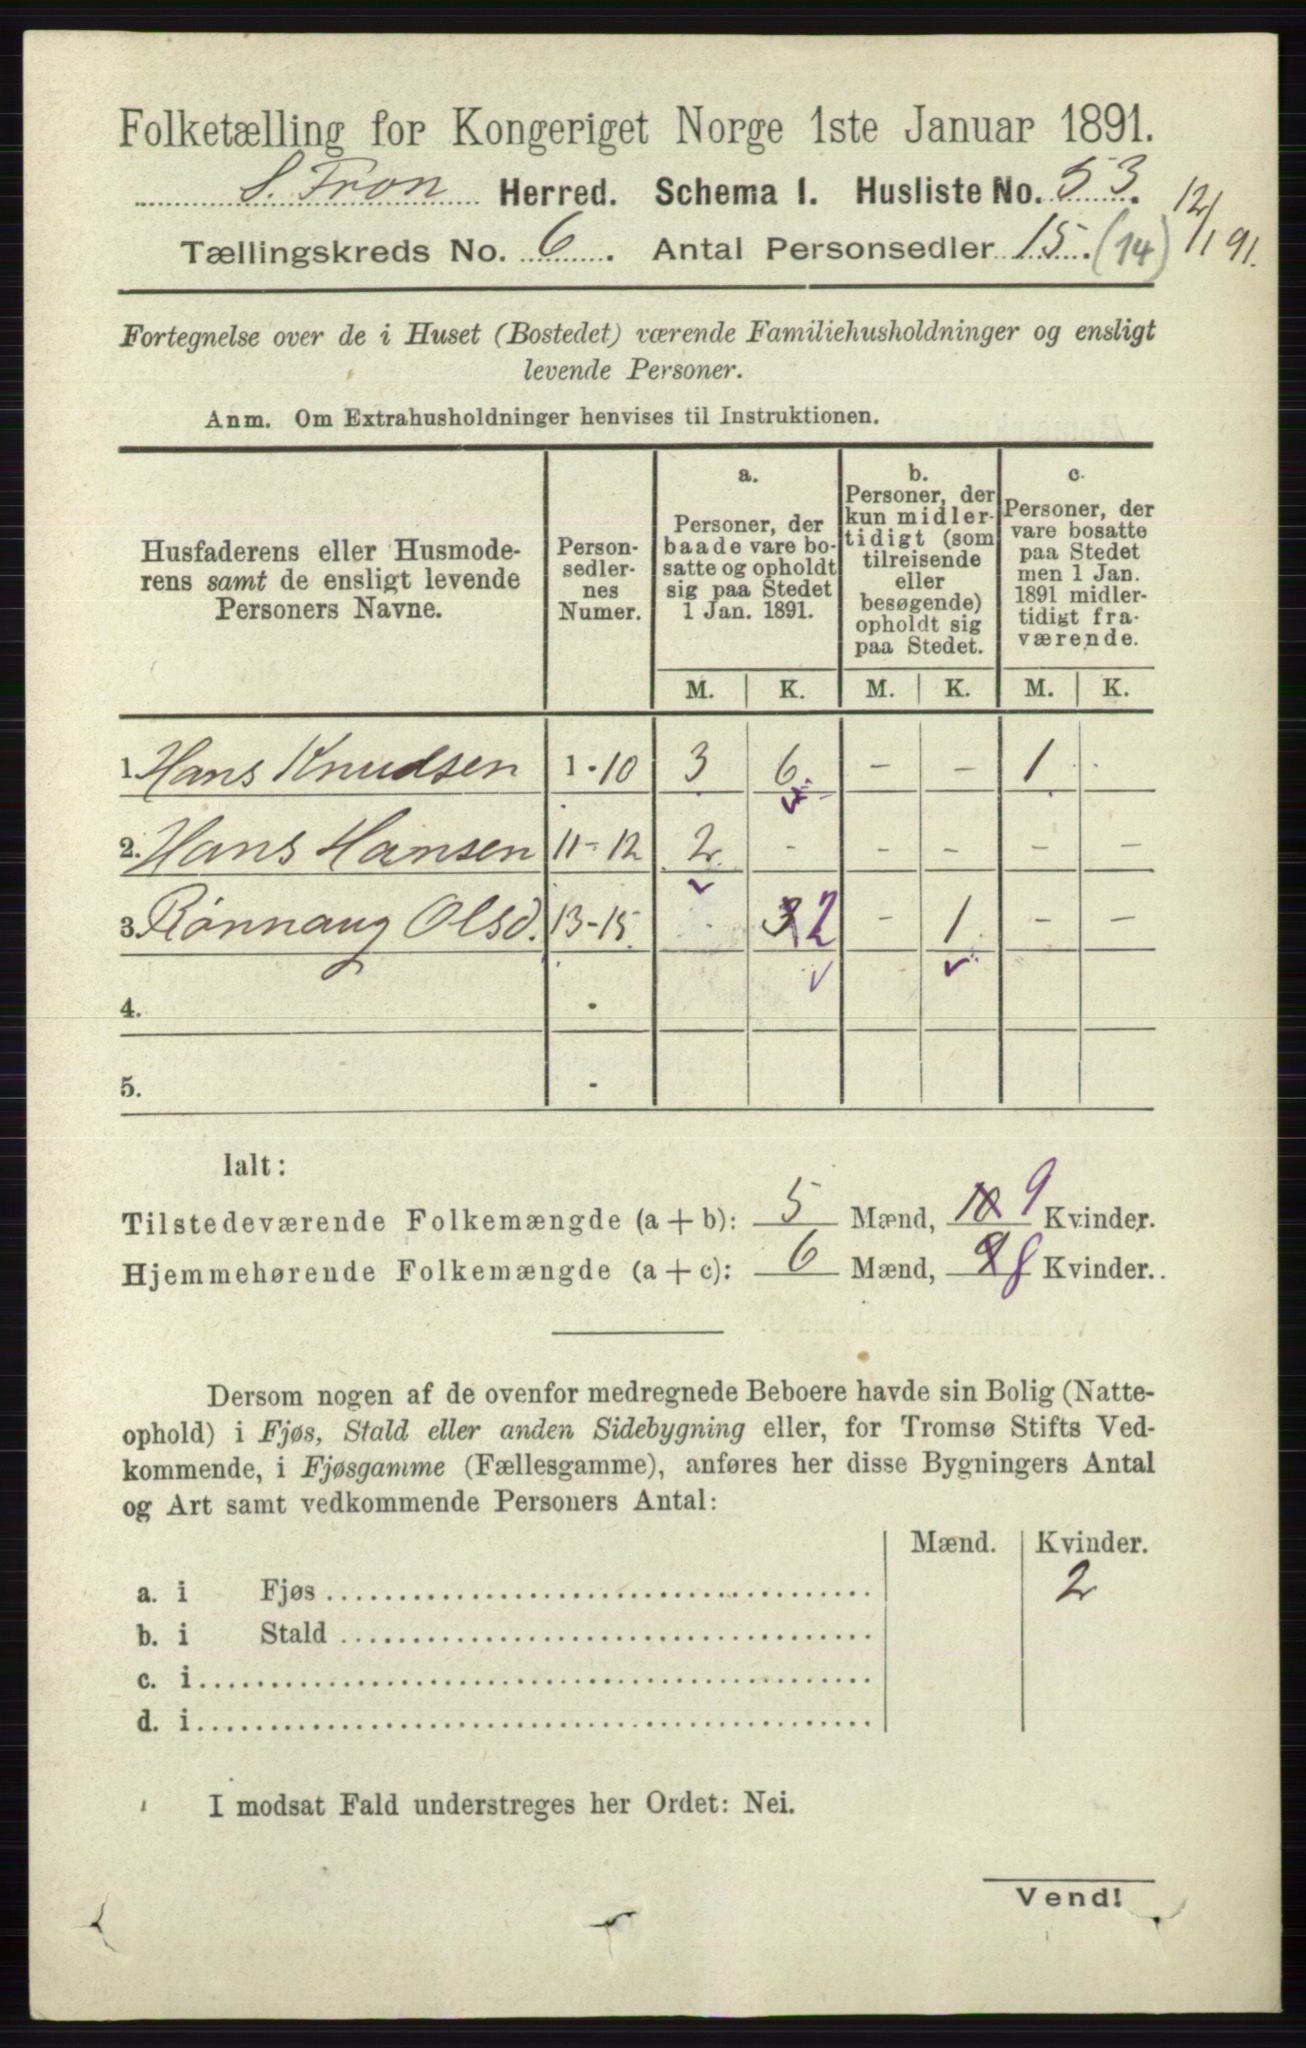 Folketælling for Kongeriget Norge 1ste Januar 1891.
S. Fron Herred. Schema 1. Husliste No. 53.
12/1 91.
Tællingskreds No. 6. Antal Personsedler 15. (14)
Fortegnelse over de i Huset (Bostedet) værende Familiehusholdninger og ensligt
levende Personer.
Anm. Om Extrahusholdninger henvises til Instruktionen.
Husfaderens eller Husmode-
rens samt de ensligt levende
Personers Navne.
Person-
sedler-
nes
Numer.
a.
Personer, der
baade vare bo-
satte og opholdt
sig paa Stedet
1 Jan. 1891.
b.
Personer, der
kun midler-
tidigt (som
tilreisende
eller
besøgende)
opholdt sig
paa Stedet.
c.
Personer, der
vare bosatte
paa Stedet
men 1 Jan.
1891 midler-
tidigt fra-
værende.
M. K. M. K. M. K.
1. Hans Knudsen 1-10 3 6 - - 1 .
2. Hans Hansen 11-12 2 - - - - -
3. Rønnaug Olsd. 13-15 . 3 2 - 1 - -
4. -
5. -
Ialt:
Tilstedeværende Folkemængde (a + b): 5 Mænd, 10 9 Kvinder.
Hjemmehørende Folkemængde (a + c): 6 Mænd, 9 8 Kvinder..
Dersom nogen af de ovenfor medregnede Beboere havde sin Bolig (Natte-
ophold) i Fjøs, Stald eller anden Sidebygning eller, for Tromsø Stifts Ved-
kommende, i Fjøsgamme (Fællesgamme), anføres her disse Bygningers Antal
og Art samt vedkommende Personers Antal:
Mænd. Kvinder.
a. i Fjøs 2
b. i Stald
c. i
d. i
I modsat Fald understreges her Ordet: Nei.
Vend!